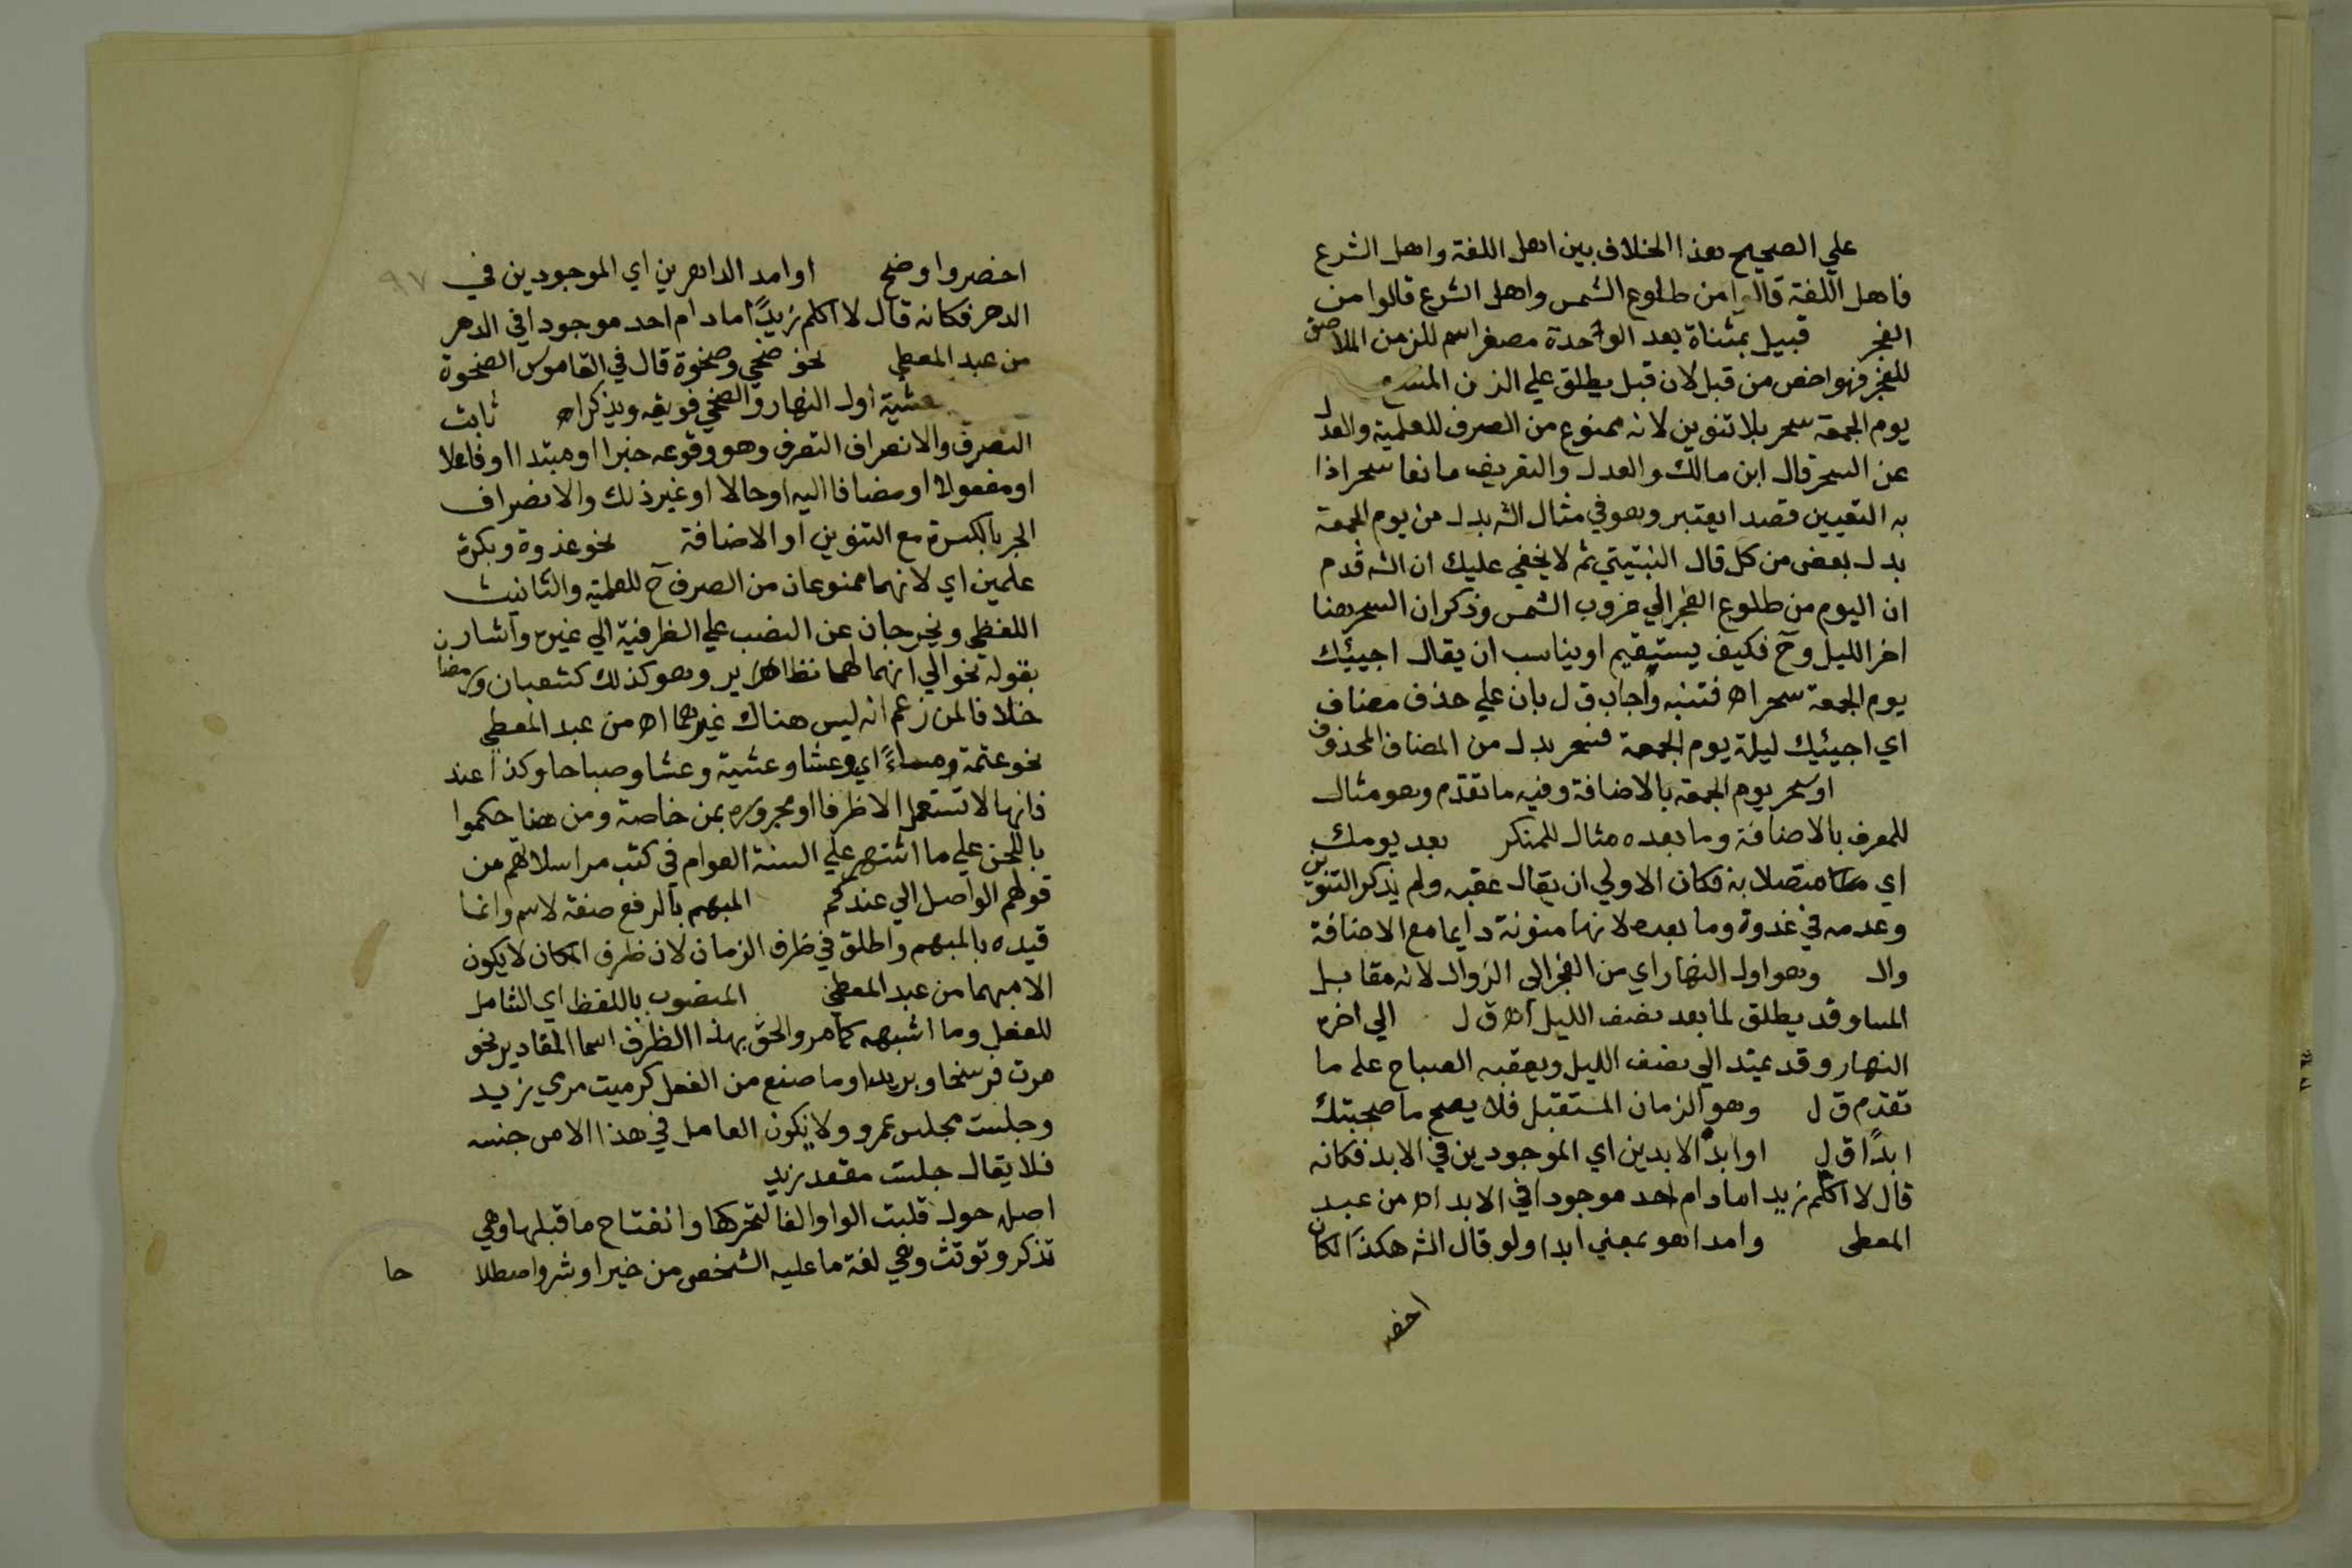 علي الصحيح هذا الخلاف بين اهل اللغة واهل الشرع
فاهل اللغة قالوا من طلوع الشمس واهل الشرع قالوا من
الفجر قبيل بمثناة بعد الواحدة مصغر اسم للزمن الملاصق
للفجر فهو اخص من قبل لان قبل يطلق علي الزمن المتسع
يوم الجمعة سحر بلا تنوين لانه ممنوع من الصرف للعلمية والعدل
عن السحر قال ابن مالك والعدل والتعريف مانعا سحر اذا
به التعيين قصدا يعتبر وهو في مثال الشه بدل من يوم الجمعة
بدل بعض من كل قال النبتيتي ثم لا يخفي عليك ان الشه قدم
ان اليوم من طلوع الفجر الي غروب الشمس وذكر ان السحر هنا
اخر الليل وح فكيف يستقيم او يناسب ان يقال اجييك
يوم الجمعة سحر اه فتنبه واجاب ق ل بان علي حذف مضاف
اي اجيئك ليلة يوم الجمعة فسحر بدل من المضاف المحذوف
او سحر يوم الجمعة بالاضافة وفيه ما تقدم وهو مثال
للمعرف بالاضافة وما بعده مثال للمنكر بعد يومك
اي متصلا به فكان الاولي ان يقال عقبه ولم يذكر التنوين
وعدمه في غدوة وما بعده لانها منونة دايما مع الاضافة
وال وهو اول النهار اي من الفجر الى الزوال لانه مقابل
المسا وقد يطلق لما بعد نصف الليل اه ق ل الي اخره
النهار وقد يمتد الي نصف الليل ويعقبه الصباح على ما
تقدم ق ل وهو الزمان المستقبل فلا يصح ما صحبتك
ابدًا ق ل او ابد الابدين اي الموجودين في الابد فكانه
قال لا اكلم زيدا ما دام احد موجودا في الابد اه من عبد
المعطى وامدا هو بمعني ابدا ولو قال الشه هكذا لكان
اخصر
٩٧
اخصر واوضح او امد الداهرين اي الموجودين في
الدهر فكانه قال لا اكلم زيدًا ما دام احد موجودا في الدهر
من عبد المعطي نحو ضحي وضحوة قال في القاموس الضحوة
عشية اول النهار والضحي فويقه ويذكر اه ثابت
التصرف والانصراف التصرف وهو وقوعه خبرا او مبتدا او فاعلا
او مفعولا او مضافا اليه او حالا او غير ذلك والانصراف
الجر بالكسرة مع التنوين او الاضافة نحو غدوة وبكرة
علمين اي لانهما ممنوعان من الصرف ح للعلمية والتانيث
اللفظي ويخرجان عن النصب علي الظرفية الي غيره واشار
بقوله نحو الي انهما لهما نظاير وهو كذلك كشعبان ورمضا
خلافا لمن زعم انه ليس هناك غيرهما اه من عبد المعطي
نحو عتمة ومساءً اي وعشا وعشية وعشا وصباحا وكذا عند
فانها لا تستعمل الا ظرفا او مجروره بمن خاصة ومن هنا حكموا
باللحن علي ما اشتهر علي السنة العوام في كتب مراسلاتهم من
قولهم الواصل الي عندكم المبهم بالرفع صفة لاسم وانما
قيده بالمبهم واطلق في ظرف الزمان لان ظرف المكان لا يكون
الا مبهما من عبد المعطي المنصوب باللفظ اي الثامل
للفعل وما اشبهه كما مر والحق بهذا الظرف اسما المقادير نحو
سرت فرسخا وبريدا وما صنع من الفعل كرميت مرمي زيد
وجلست مجلس عمرو ولا يكون العامل في هذا الا من جنسه
فلا يقال جلست مقعد زيد
اصله حول قلبت الواو الفا لتحركها وانفتاح ما قبلها وهي
تذكر وتونث وهي لغة ما عليه الشخص من خير او شر واصطلا
حا